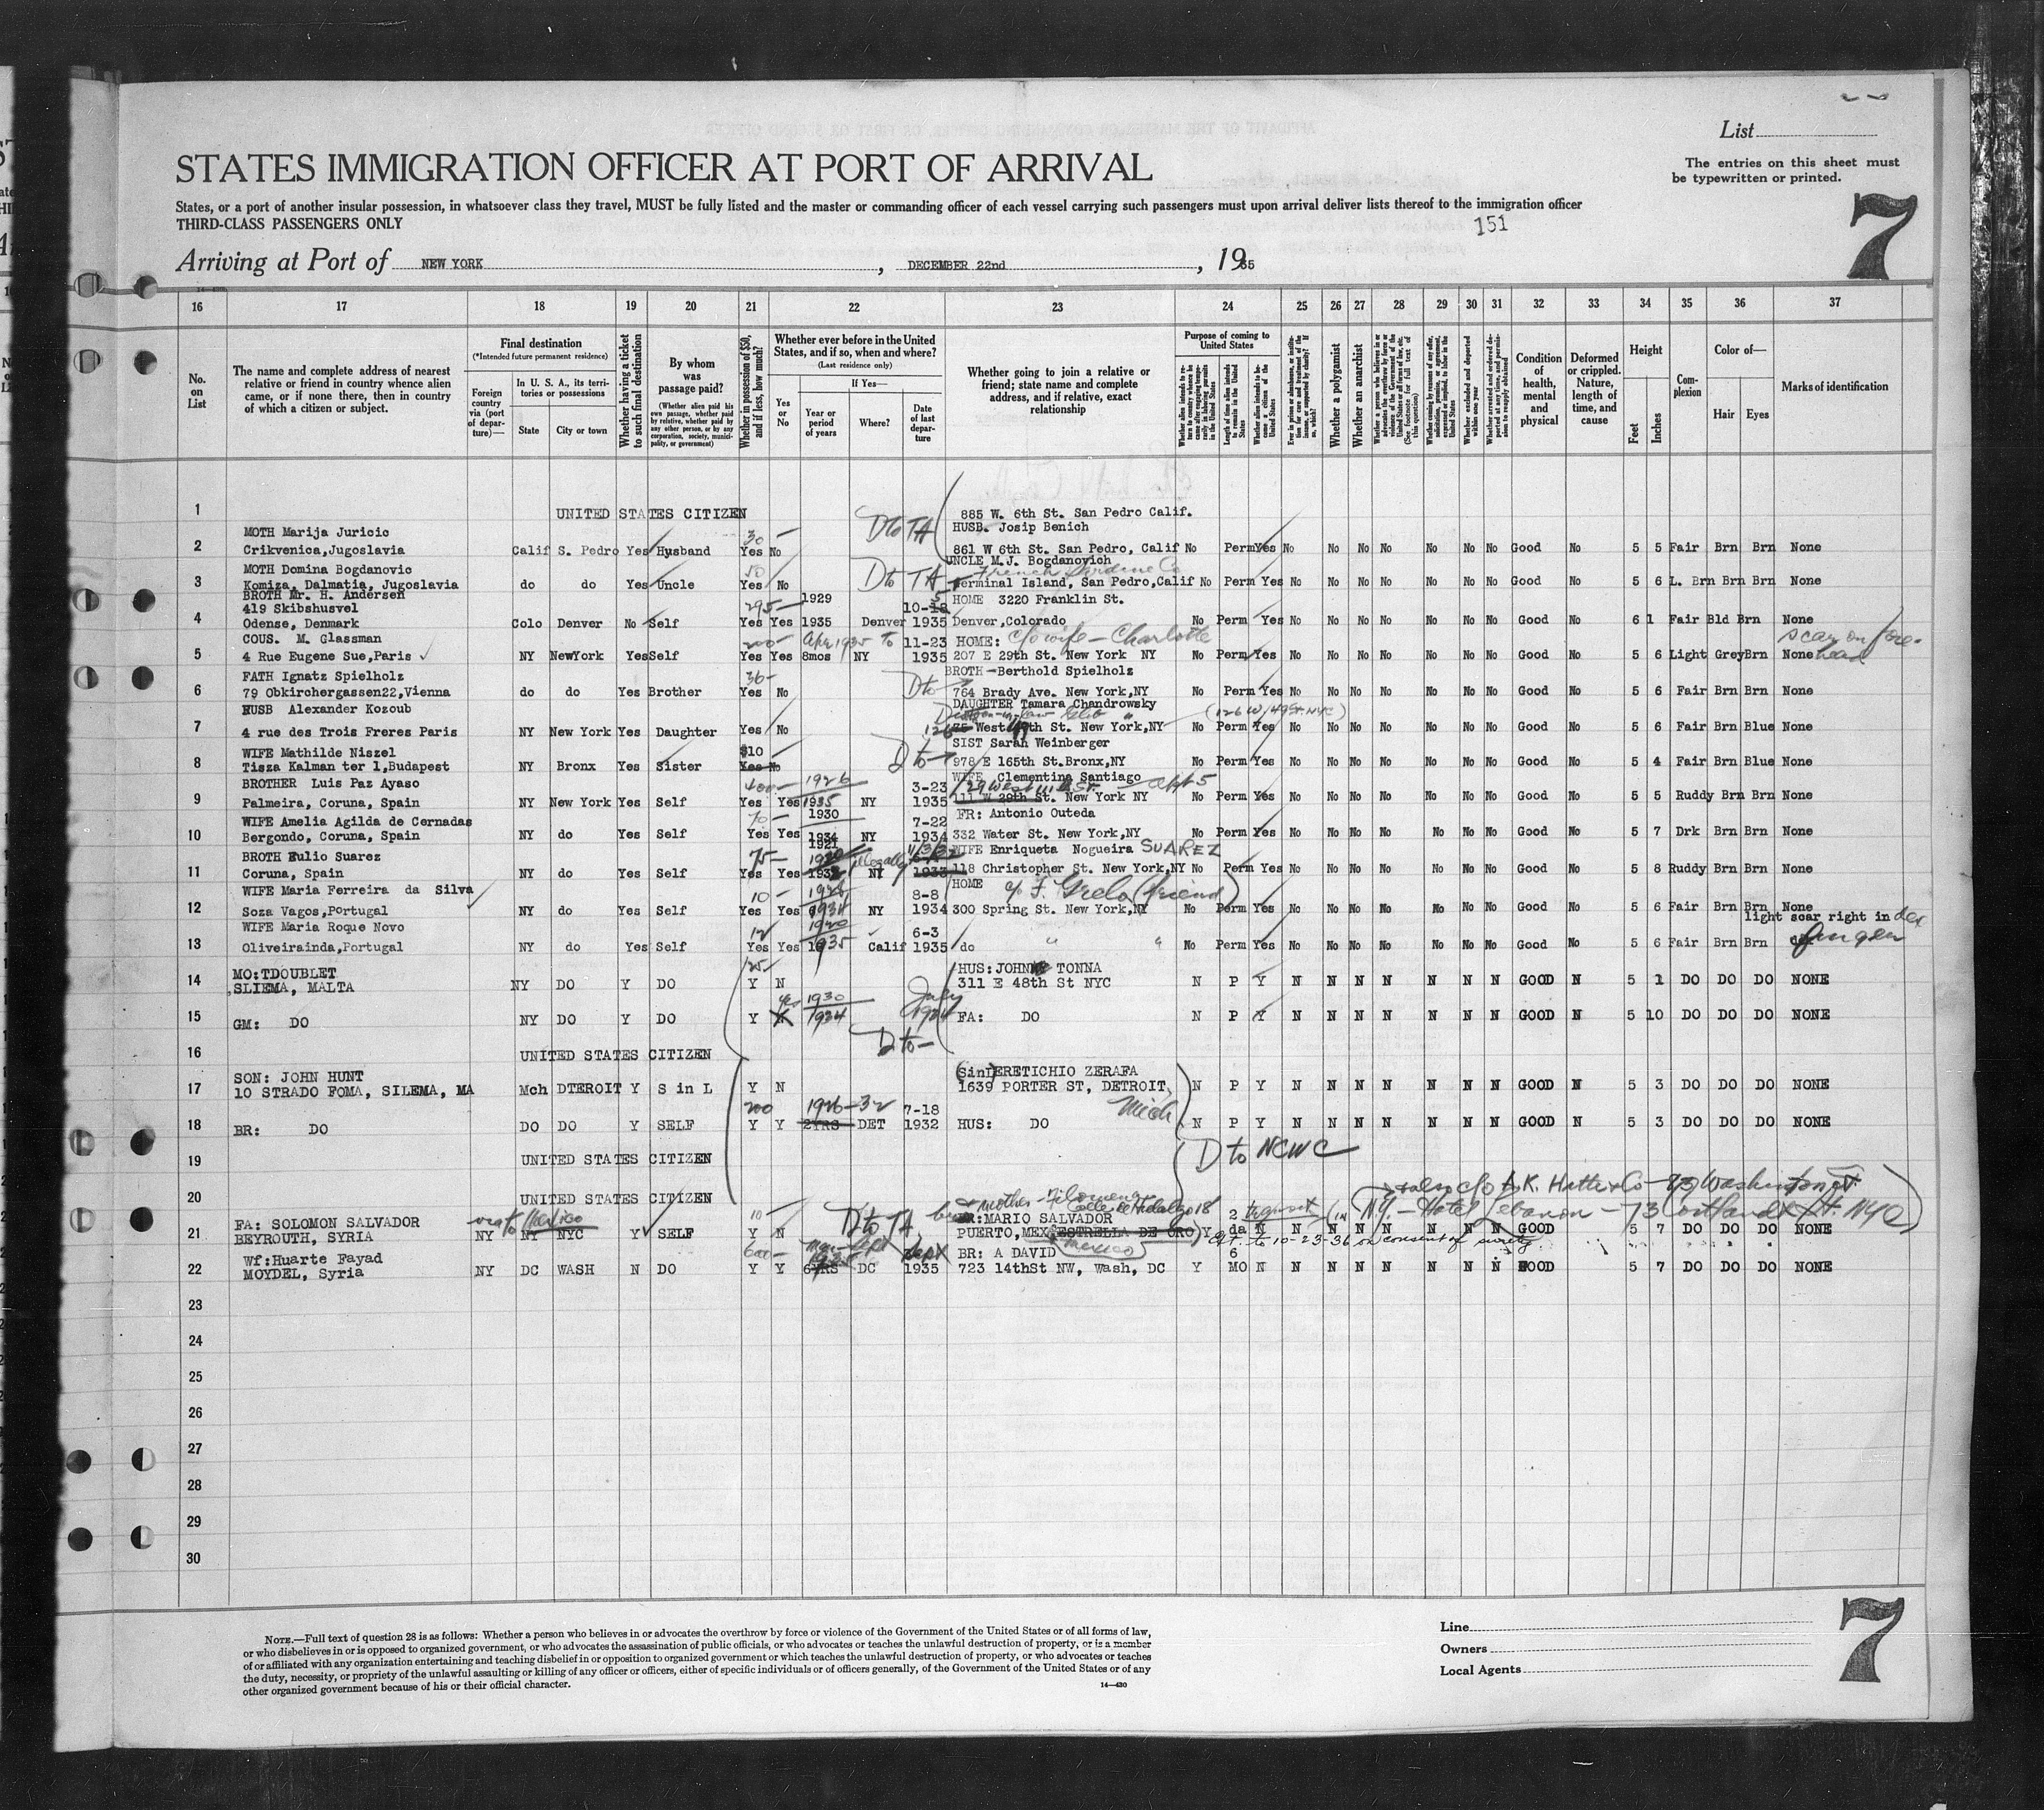 List
STATES IMMIGRATION OFFICER AT PORT OF ARRIVAL
The entries on this sheet must
be typewritten or printed.
States, or a port of another insular possession, in whatsoever class they travel, MUST be fully listed and the master or commanding officer of each vessel carrying such passengers must upon arrival deliver lists thereof to the immigration officer
THIRD-CLASS PASSENGERS ONLY
151
7
Arriving at Port of NEW YORK, DECEMBER 22nd, 1935
16 17 18 19 20 21 22 23 24 25 26 27 28 29 30 31 32 33 34 35 36 37
No. on List
The name and complete address of nearest relative or friend in country whence alien came, or if none there, then in country of which a citizen or subject.
Final destination
(*Intended future permanent residence)
Foreign country via (port of departure)—
In U. S. A., its territories or possessions
State
City or town
Whether having a ticket to such final destination
By whom was passage paid?
(Whether alien paid his own passage, whether paid by relative, whether paid by any other person, or by any corporation, society, municipality, or government)
Whether in possession of $50, and if less, how much?
Whether ever before in the United States, and if so, when and where?
(Last residence only)
Yes or No
If Yes—
Year or period of years
Where?
Date of last departure
Whether going to join a relative or friend; state name and complete address, and if relative, exact relationship
Purpose of coming to United States
Length of time alien intends to remain in the United States
Whether alien intends to become a citizen of the United States
Whether a polygamist
Whether an anarchist
Condition of health, mental and physical
Deformed or crippled. Nature, length of time, and cause
Height
Feet
Inches
Complexion
Color of—
Hair
Eyes
Marks of identification
1 UNITED STATES CITIZEN 885 W. 6th St. San Pedro Calif.
MOTH Marija Juricic 30 — D to TA HUSB. Josip Benich
2 Crikvenica,Jugoslavia Calif S. Pedro Yes Husband Yes No 861 W 6th St. San Pedro, Calif No Perm Yes No No No No No No No Good No 5 5 Fair Brn Brn None
MOTH Domina Bogdanovic 50 D to TA UNCLE M.J. Bogdanovich
French Sardine Co
3 Komiza, Dalmatia, Jugoslavia do do Yes Uncle Yes No Terminal Island, San Pedro,Calif No Perm Yes No No No No No No No Good No 5 6 L. Brn Brn Brn None
BROTH Mr. H. Andersen 1929 HOME 3220 Franklin St.
419 Skibshusvel 295— 10-
4 Odense, Denmark Colo Denver No Self Yes Yes 1935 Denver 1935 Denver,Colorado No Perm Yes No No No No No No No Good No 6 1 Fair Bld Brn None
COUS. M. Glassman 200— Apr 1935 to 11-23 HOME: c/o wife — Charlotte scar on fore-
5 4 Rue Eugene Sue,Paris NY NewYork Yes Self Yes Yes 8mos NY 1935 207 E 29th St. New York NY No Perm Yes No No No No No No No Good No 5 6 Light Grey Brn None head
FATH Ignatz Spielholz 36— D to BROTH-Berthold Spielholz
6 79 Obkirchergassen22,Vienna do do Yes Brother Yes No 764 Brady Ave. New York,NY No Perm Yes No No No No No No No Good No 5 6 Fair Brn Brn None
HUSB Alexander Kozoub DAUGHTER Tamara Chandrowsky
(126 W/49 St. NYC)
7 4 rue des Trois Freres Paris NY New York Yes Daughter Yes No 126 75 West 49th St. New York,NY No Perm Yes No No No No No No No Good No 5 6 Fair Brn Blue None
WIFE Mathilde Niszel $10 — D to SIST Sarah Weinberger
8 Tisza Kalman ter 1,Budapest NY Bronx Yes Sister Yes No 978 E 165th St.Bronx,NY No Perm Yes No No No No No No No Good No 5 4 Fair Brn Blue None
BROTHER Luis Paz Ayaso 400— 1926 3-23 WIFE Clementina Santiago
Apt 5
9 Palmeira, Coruna, Spain NY New York Yes Self Yes Yes 1935 NY 1935 111 W 29th St. New York NY No Perm Yes No No No No No No No Good No 5 5 Ruddy Brn Brn None
WIFE Amelia Agilda de Cernadas 70— 1930 7-22 FR: Antonio Outeda
10 Bergondo, Coruna, Spain NY do Yes Self Yes Yes 1934 NY 1934 332 Water St. New York,NY No Perm Yes No No No No No No No Good No 5 7 Drk Brn Brn None
BROTH Eulio Suarez 75— 1921 illegally WIFE Enriqueta Nogueira SUAREZ
11 Coruna, Spain NY do Yes Self Yes Yes NY 1933 118 Christopher St. New York,NY No Perm Yes No No No No No No No Good No 5 8 Ruddy Brn Brn None
WIFE Maria Ferreira da Silva 10— 1926 8-8 HOME c/o F. Grelo (friend)
12 Soza Vagos,Portugal NY do Yes Self Yes Yes 1934 NY 1934 300 Spring St. New York,NY No Perm Yes No No No No No No No Good No 5 6 Fair Brn Brn None
WIFE Maria Roque Novo 12 1920 6-3 light scar right index
13 Oliveirainda,Portugal NY do Yes Self Yes Yes 1935 Calif 1935 do " " No Perm Yes No No No No No No No Good No 5 6 Fair Brn Brn finger
MO:TDOUBLET 25— HUS:JOHN TONNA
14 SLIEMA, MALTA NY DO Y DO Y N 311 E 48th St NYC N P Y N N N N N N N GOOD N 5 1 DO DO DO NONE
yes 1930 July
15 GM: DO NY DO Y DO Y N 1934 1934 FA: DO N P Y N N N N N N N GOOD N 5 10 DO DO DO NONE
16 UNITED STATES CITIZEN D to—
SON: JOHN HUNT (SinL) ERETICHIO ZERAFA
17 10 STRADO FOMA, SILEMA, MA Mch DTEROIT Y S in L Y N 1639 PORTER ST, DETROIT, N P Y N N N N N N N GOOD N 5 3 DO DO DO NONE
200 1926-32 7-18 Mich
18 BR: DO DO DO Y SELF Y Y 2YRS DET 1932 HUS: DO N P Y N N N N N N N GOOD N 5 3 DO DO DO NONE
19 UNITED STATES CITIZEN D to NCWC
20 UNITED STATES CITIZEN
Washington St
mother - Filomena
Calle Hidalgo 18
N.Y. - Hotel Lebanon - 73 Cortlandt St. NYC
FA: SOLOMON SALVADOR Mexico 10 — D to TA MARIO SALVADOR 2 transit
21 BEYROUTH, SYRIA NY NY NYC Y SELF Y N PUERTO,MEX ESTRELLA DE ORO Y da N N N N N N N N GOOD 5 7 DO DO DO NONE
to 10-23-36 on consent of surety
Wf:Huarte Fayad 600— BR: A DAVID Mexico 6
22 MOYDEL, Syria NY DC WASH N DO Y Y 6YRS DC 1935 723 14thSt NW, Wash, DC Y MO N N N N N N N N GOOD 5 7 DO DO DO NONE
23
24
25
26
27
28
29
30
NOTE.—Full text of question 28 is as follows: Whether a person who believes in or advocates the overthrow by force or violence of the Government of the United States or of all forms of law,
or who disbelieves in or is opposed to organized government, or who advocates the assassination of public officials, or who advocates or teaches the unlawful destruction of property, or is a member
of or affiliated with any organization entertaining and teaching disbelief in or opposition to organized government or which teaches the unlawful destruction of property, or who advocates or teaches
the duty, necessity, or propriety of the unlawful assaulting or killing of any officer or officers, either of specific individuals or of officers generally, of the Government of the United States or of any
other organized government because of his or their official character.
14—430
Line
Owners
Local Agents
7